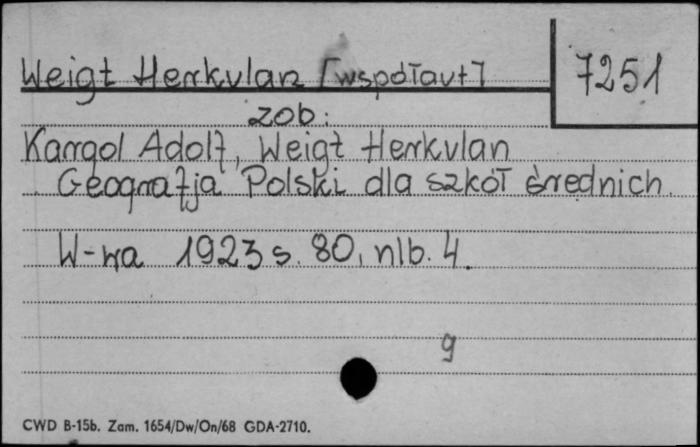 Weigt Herkulan [współaut]
7251
zob:
Kargol Adolf, Weigt Herkulan
Geografja Polski dla szkół średnich.
W-wa 1923 s. 80, nlb. 4.
9
CWD B-15b. Zam. 1654/Dw/On/68 GDA-2710.